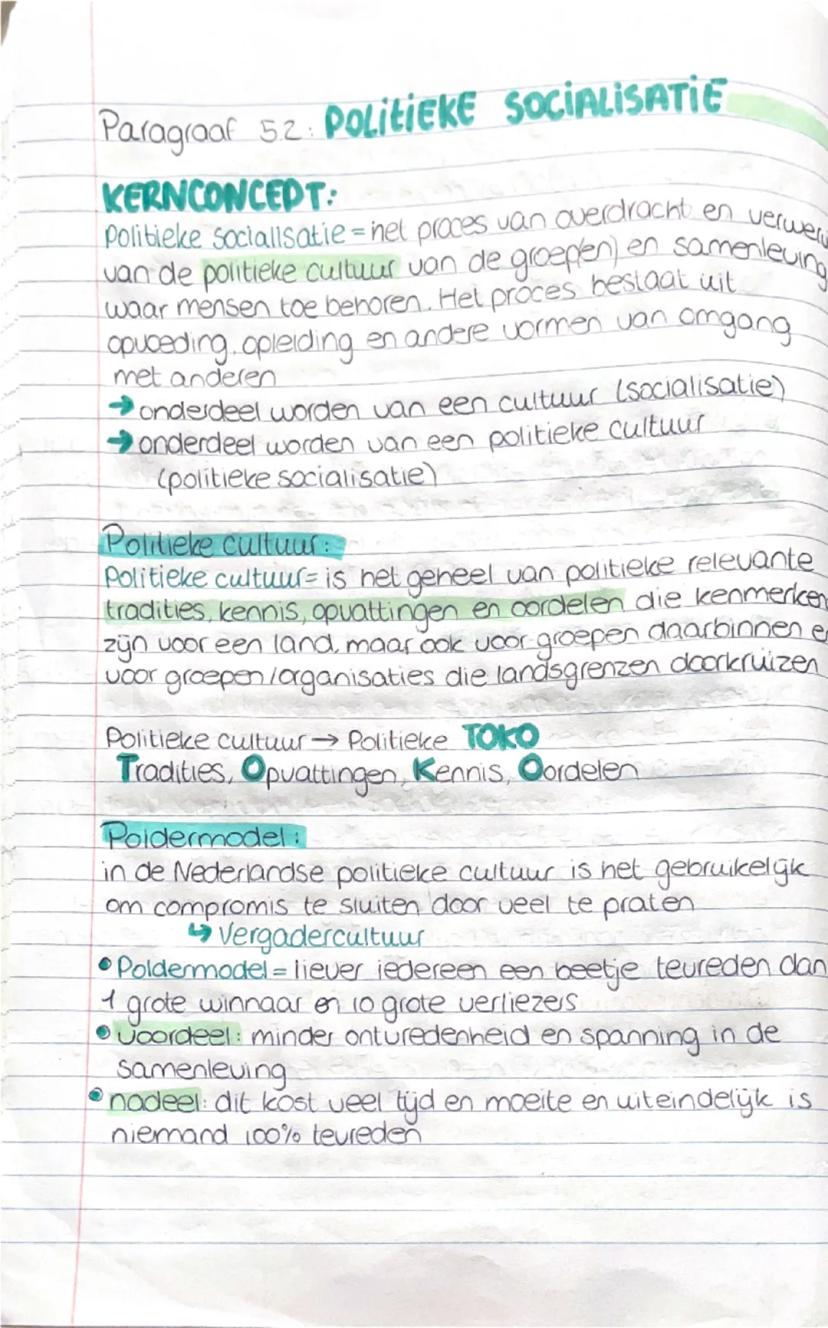 Paragraaf 5.2: POLITIEKE SOCIALISATIE
KERNCONCEPT:
Politieke socialisatie = het proces van overdracht en verwerv
van de politieke cultuur van de groep(en) en samenleving
waar mensen toe behoren. Het proces bestaat uit
opvoeding, opleiding en andere vormen van omgang
met anderen
→ onderdeel worden van een cultuur (socialisatie)
→ onderdeel worden van een politieke cultuur
(politieke socialisatie)
Politieke cultuur:
Politieke cultuur= is het geheel van politieke relevante
tradities, kennis, opvattingen en oordelen die kenmerken
zijn voor een land, maar ook voor groepen daarbinnen en
voor groepen/organisaties die landsgrenzen doorkruizen
Politieke cultuur → Politieke TOKO
Tradities, Opvattingen, Kennis, Oordelen
Poldermodel:
in de Nederlandse politieke cultuur is het gebruikelijk
om compromis te sluiten door veel te praten
↳ Vergadercultuur
• Poldermodel = liever iedereen een beetje tevreden dan
1 grote winnaar en 10 grote verliezers
• voordeel: minder ontvredenheid en spanning in de
samenleving
• nadeel: dit kost veel tijd en moeite en uiteindelijk is
niemand 100% tevreden